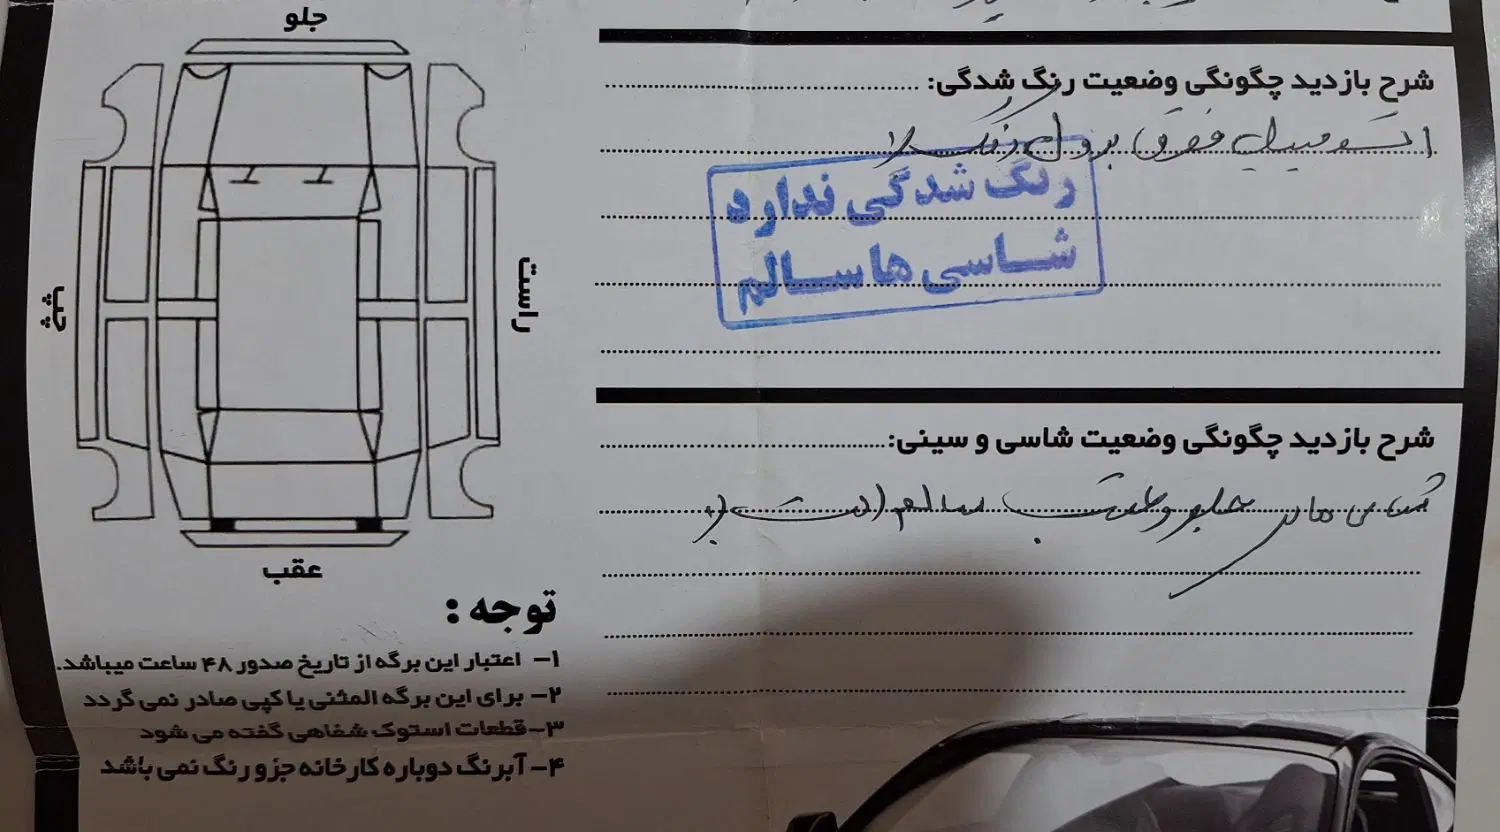 جلو
راست
چپ
عقب
شرح بازدید چگونگی وضعیت رنگ شدگی:
اتومبیل فوق بدون رنگ
رنگ شدگی ندارد
شاسی ها سالم
شرح بازدید چگونگی وضعیت شاسی و سینی:
شاسی های جلو و عقب سالم است
توجه :
۱- اعتبار این برگه از تاریخ صدور ۴۸ ساعت میباشد.
۲- برای این برگه المثنی یا کپی صادر نمی گردد
۳- قطعات استوک شفاهی گفته می شود
۴- آبرنگ دوباره کارخانه جزو رنگ نمی باشد